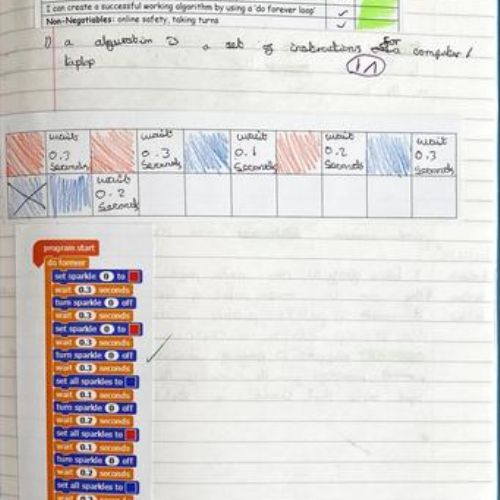 I can create a successful working algorithm by using a 'do forever loop'
Non-Negotiables: online safety, taking turns
1) a alguestion is a set of instructions for a computer /
laptop
wait wait wait wait wait
0.3 0.3 0.1 0.2 0.3
Seconds Seconds Seconds Seconds Seconds
wait
0.2
Seconds
program start
do forever
set sparkle 0 to
wait 0.3 seconds
turn sparkle 0 off
wait 0.3 seconds
set sparkle 0 to
wait 0.3 seconds
turn sparkle 0 off
wait 0.3 seconds
set all sparkles to
wait 0.1 seconds
turn sparkle 0 off
wait 0.2 seconds
set all sparkles to
wait 0.1 seconds
turn sparkle 0 off
wait 0.2 seconds
set all sparkles to